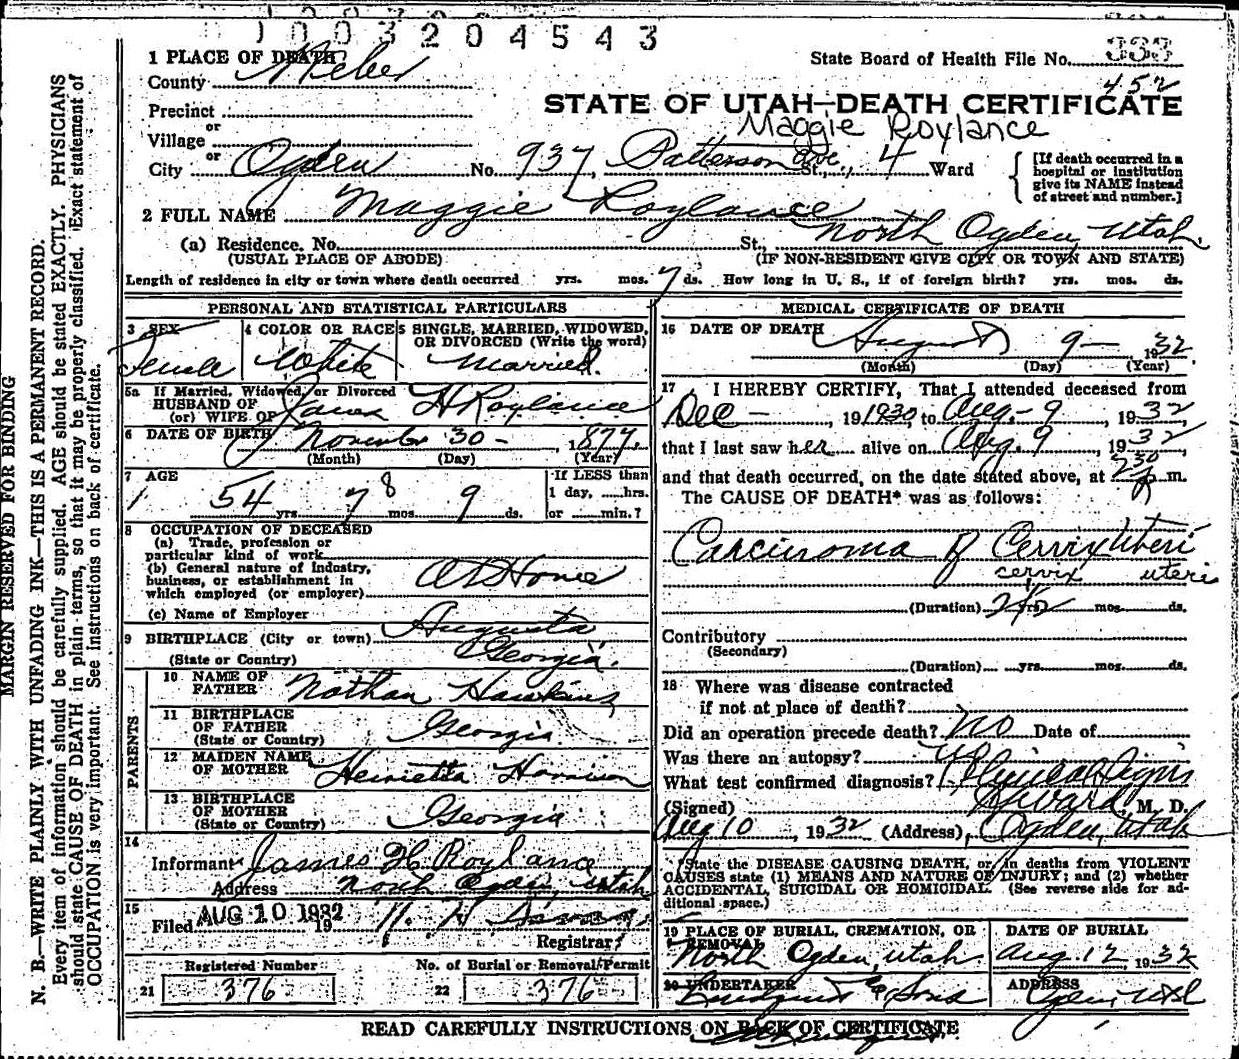 1003204543
1 PLACE OF DEATH
State Board of Health File No. 333
County Weber
452
Precinct
STATE OF UTAH—DEATH CERTIFICATE
or
Maggie Roylance
Village
or
City Ogden No. 937, Patterson Ave. St., 4 Ward
[If death occurred in a hospital or institution give its NAME instead of street and number.]
2 FULL NAME Maggie Roylance
(a) Residence. No. St., North Ogden, Utah.
(USUAL PLACE OF ABODE) (IF NON-RESIDENT GIVE CITY OR TOWN AND STATE)
Length of residence in city or town where death occurred yrs. mos. 7 ds. How long in U. S., if of foreign birth? yrs. mos. ds.
PERSONAL AND STATISTICAL PARTICULARS
3 SEX 4 COLOR OR RACE 5 SINGLE, MARRIED, WIDOWED, OR DIVORCED (Write the word)
Female White Married.
5a If Married, Widowed, or Divorced
HUSBAND OF
(or) WIFE OF James H Roylance
6 DATE OF BIRTH November 30 - 1877.
(Month) (Day) (Year)
7 AGE If LESS than
1 day, hrs.
54 yrs. 7 8 mos. 9 ds. or min.?
8 OCCUPATION OF DECEASED
(a) Trade, profession or particular kind of work
(b) General nature of industry, business, or establishment in which employed (or employer) At Home
(c) Name of Employer
9 BIRTHPLACE (City or town) Augusta
(State or Country) Georgia.
PARENTS
10 NAME OF FATHER Nathan Hawkins
11 BIRTHPLACE OF FATHER (State or Country) Georgia.
12 MAIDEN NAME OF MOTHER Henrietta Harrison
13 BIRTHPLACE OF MOTHER (State or Country) Georgia
14
Informant James H Roylance
Address North Ogden, Utah
15
Filed AUG 10 1932 19
Registrar
Registered Number No. of Burial or Removal Permit
21 376 22 376
MEDICAL CERTIFICATE OF DEATH
16 DATE OF DEATH August 9 - 1932
(Month) (Day) (Year)
17 I HEREBY CERTIFY, That I attended deceased from
Dec - 191930, to Aug. - 9, 1932
that I last saw her alive on Aug. 9, 1932
and that death occurred, on the date stated above, at 230 P m.
The CAUSE OF DEATH* was as follows:
Carcinoma of Cervix Uteri
cervix uteri
(Duration) 2 1/2 yrs. mos. ds.
Contributory
(Secondary)
(Duration) yrs. mos. ds.
18 Where was disease contracted
if not at place of death?
Did an operation precede death? No Date of
Was there an autopsy?
What test confirmed diagnosis? Clinical Signs
(Signed) M. D.
Aug 10, 1932 (Address), Ogden, Utah
*State the DISEASE CAUSING DEATH, or, in deaths from VIOLENT
CAUSES state (1) MEANS AND NATURE OF INJURY; and (2) whether
ACCIDENTAL, SUICIDAL OR HOMICIDAL. (See reverse side for ad-
ditional space.)
19 PLACE OF BURIAL, CREMATION, OR REMOVAL DATE OF BURIAL
North Ogden, Utah Aug. 12, 1932
20 UNDERTAKER ADDRESS
Lindquist & Sons Ogden Utah
READ CAREFULLY INSTRUCTIONS ON BACK OF CERTIFICATE
MARGIN RESERVED FOR BINDING
N. B.—WRITE PLAINLY WITH UNFADING INK—THIS IS A PERMANENT RECORD.
Every item of information should be carefully supplied. AGE should be stated EXACTLY. PHYSICIANS
should state CAUSE OF DEATH in plain terms, so that it may be properly classified. Exact statement of
OCCUPATION is very important. See instructions on back of certificate.